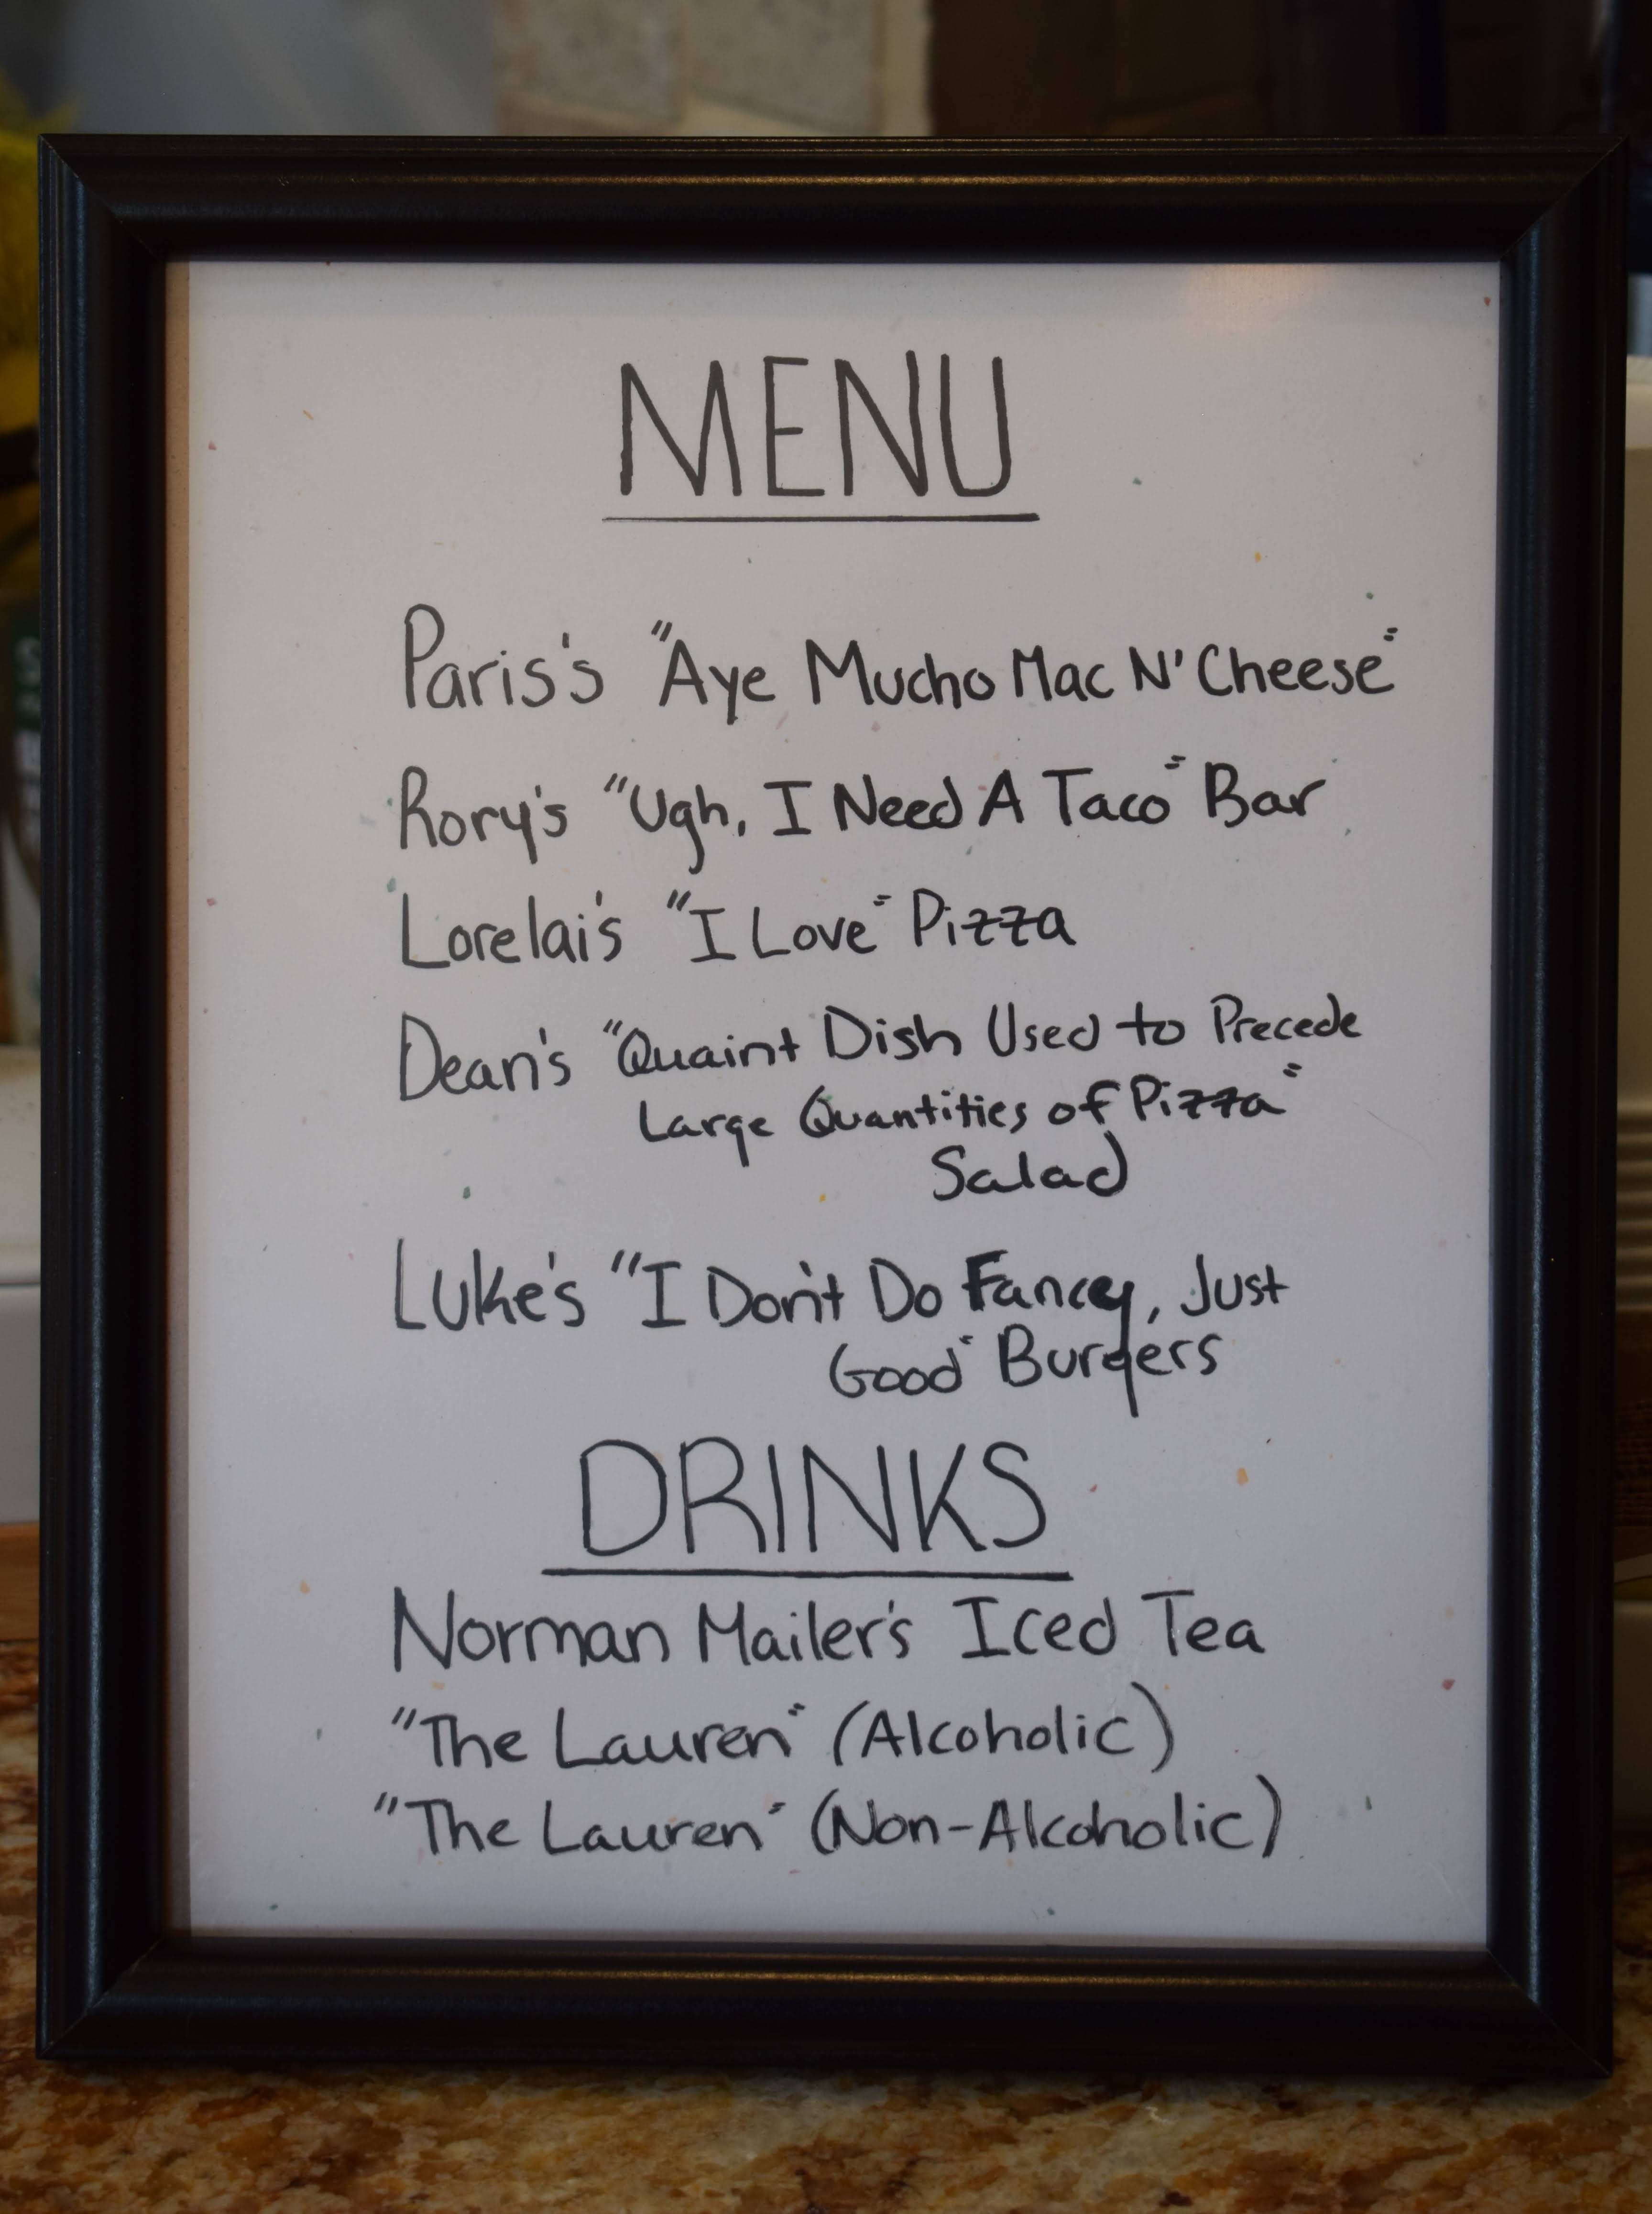 MENU
Paris's "Aye Mucho Mac N' Cheese"
Rory's "Ugh, I Need A Taco" Bar
Lorelai's "I Love" Pizza
Dean's "Quaint Dish Used to Precede
Large Quantities of Pizza"
Salad
Luke's "I Don't Do Fancy, Just
Good" Burgers
DRINKS
Norman Mailer's Iced Tea
"The Lauren" (Alcoholic)
"The Lauren" (Non-Alcoholic)